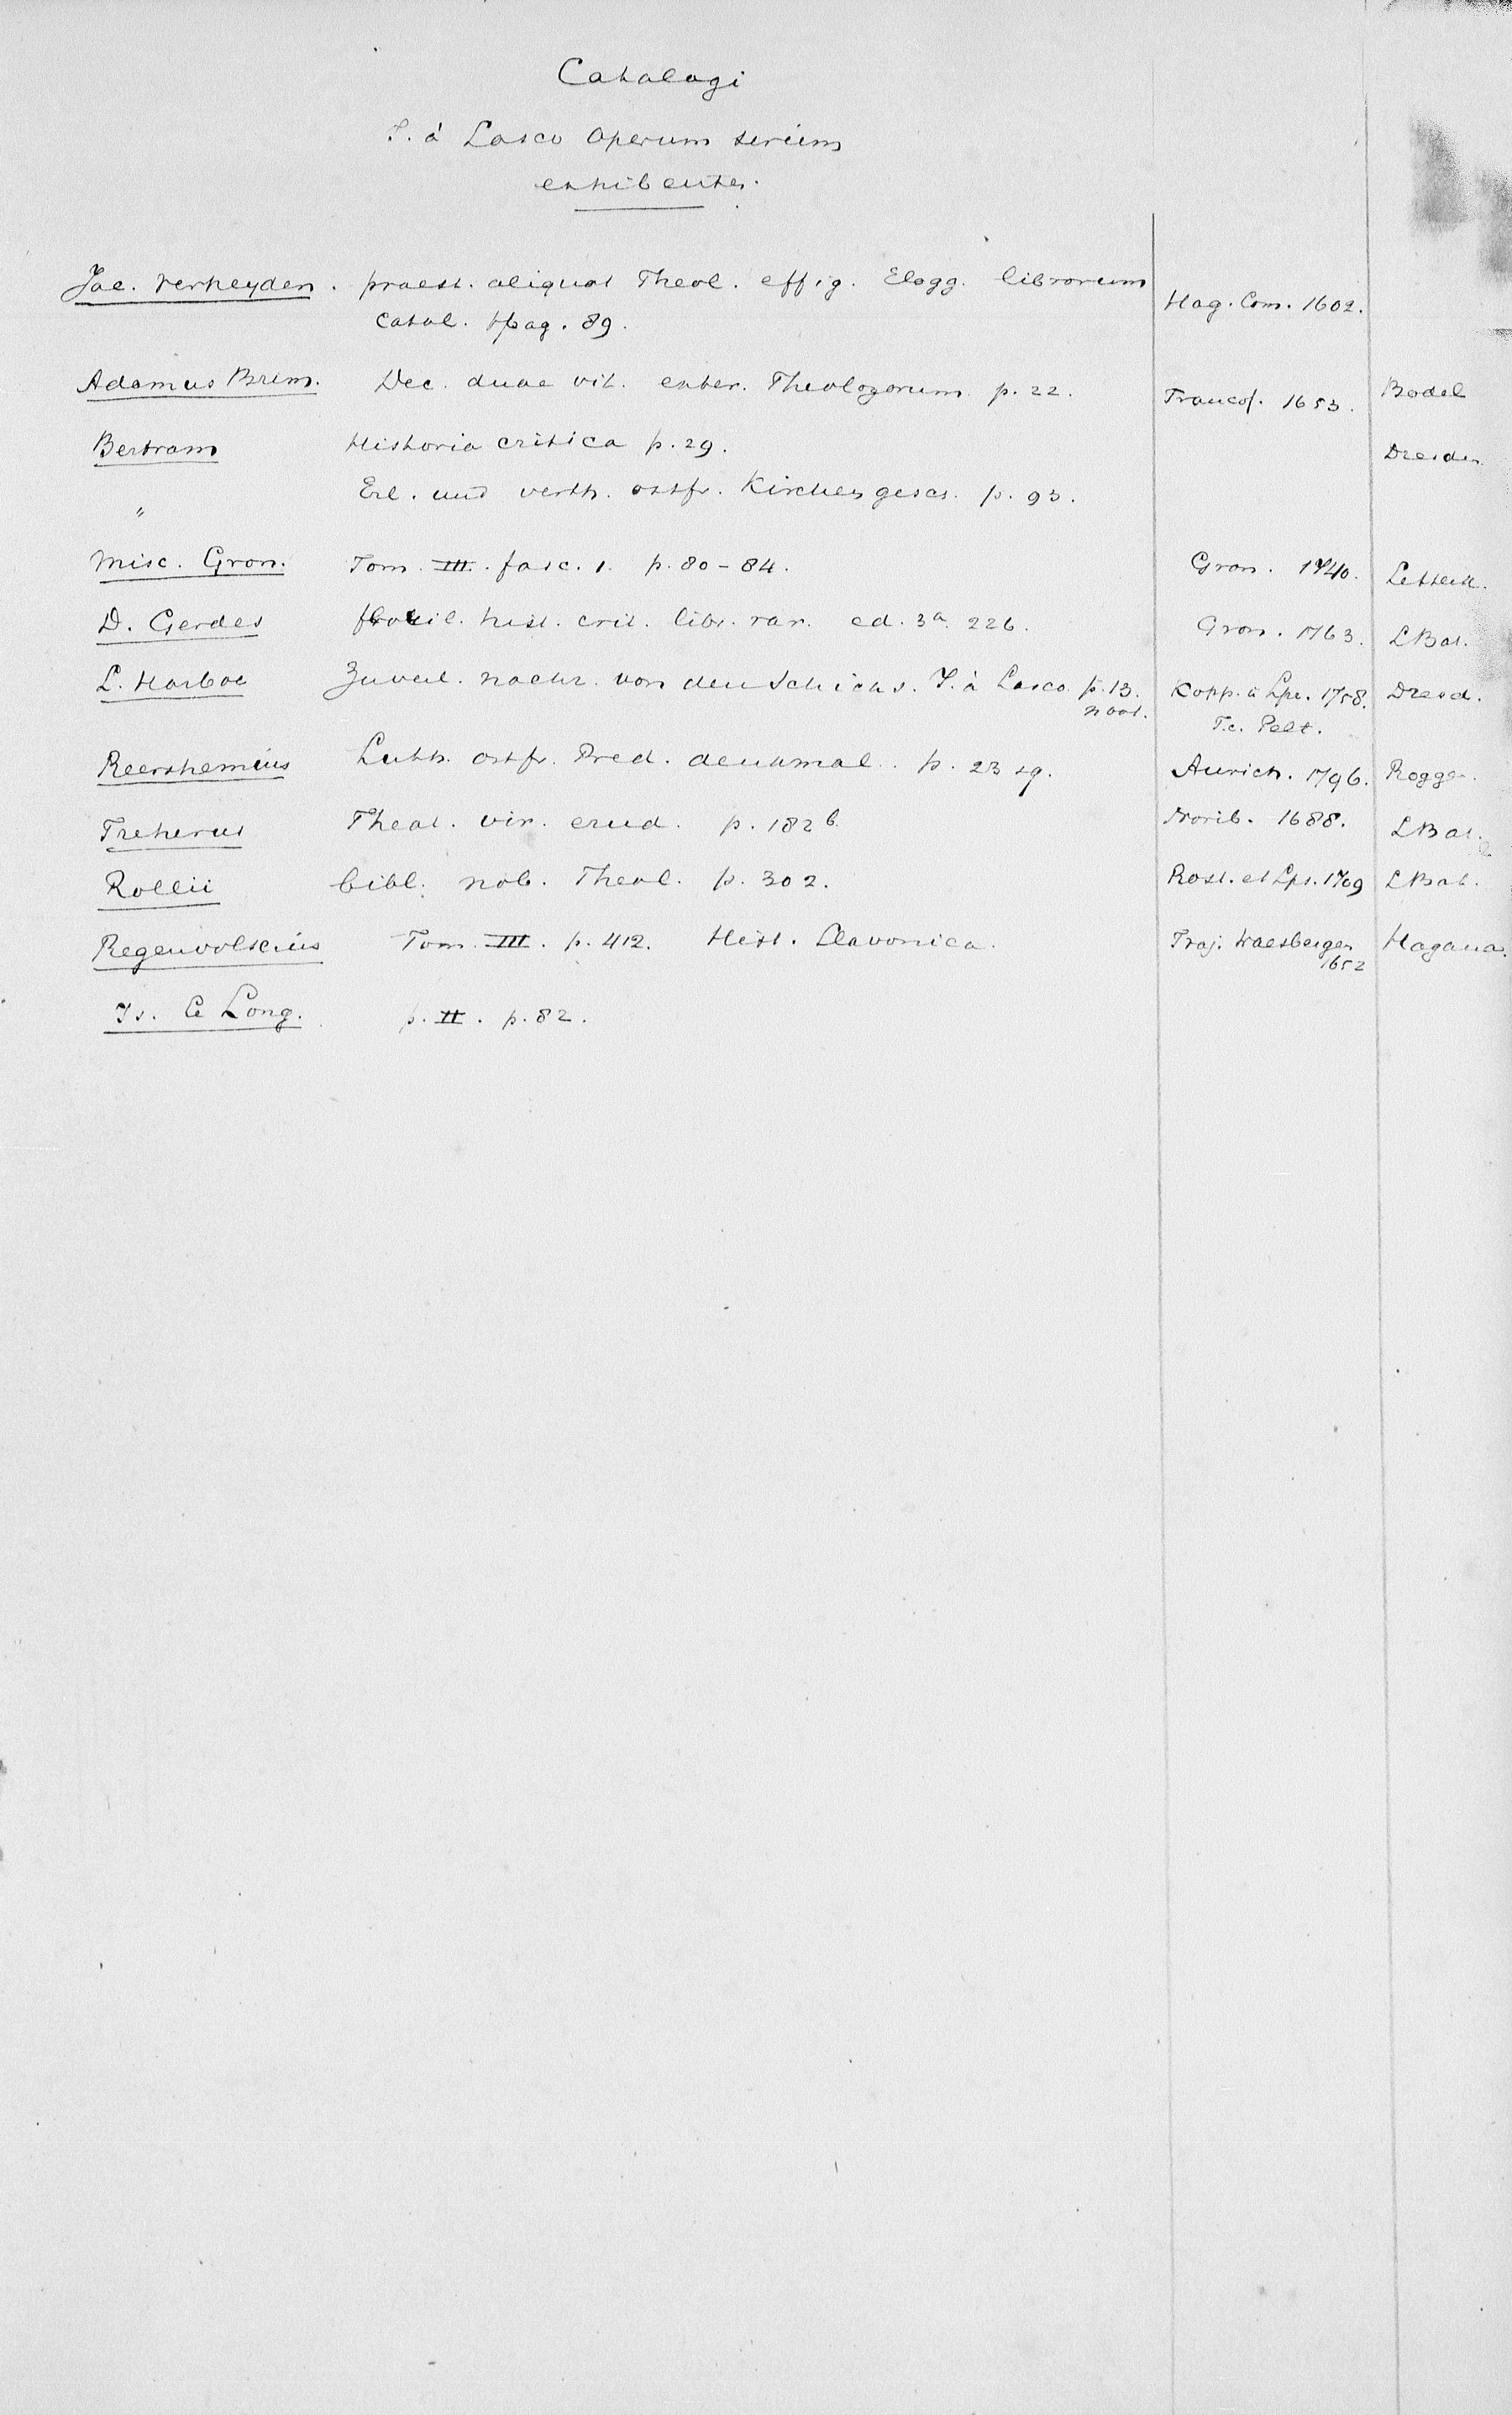 Catalogi
J. à Lasco Operum seriem
exhibentes.
Jac. Verheyden. praest. aliquot Theol. effig. Elogg. librorum Hag. Com. 1602.
Catal. pag. 89.
Adamus Brem. Dec. duae vit. exter. Theologorum p. 22. Francof. 1653. Bodel
Bertram Historia critica p. 29. Dresden
" Erl. und verth. ostfr. Kirchengesch. p. 93.
Misc. Gron. Tom. III. fasc. 1. p. 80-84. Gron. 1740. Letterk.
D. Gerdes floril. hist. crit. libr. rar. ed. 3a. 226. Gron. 1763. LBat.
L. Harboe Zuverl. nachr. von den Schicks. J. à Lasco p. 13. Kopp. u Lpz. 1758. Dresd.
noot. T.c. Pelt.
Reershemius Luth. ostfr. Pred. denkmal. p. 23 sq. Aurich. 1796. Rogge.
Freherus Theat. vir. erud. p. 182 b. Norib. 1688. LBat.
Rollii bibl. nob. Theol. p. 302. Rost. et Lps. 1709 LBat.
Regenvolscius Tom. III. p. 412. Hist. Slavonica. Traj. Waesbergen Hagana.
1652
Is. Le Long. p. II. p. 82.